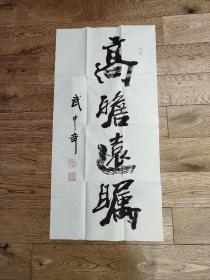 高瞻遠瞩
武中奇